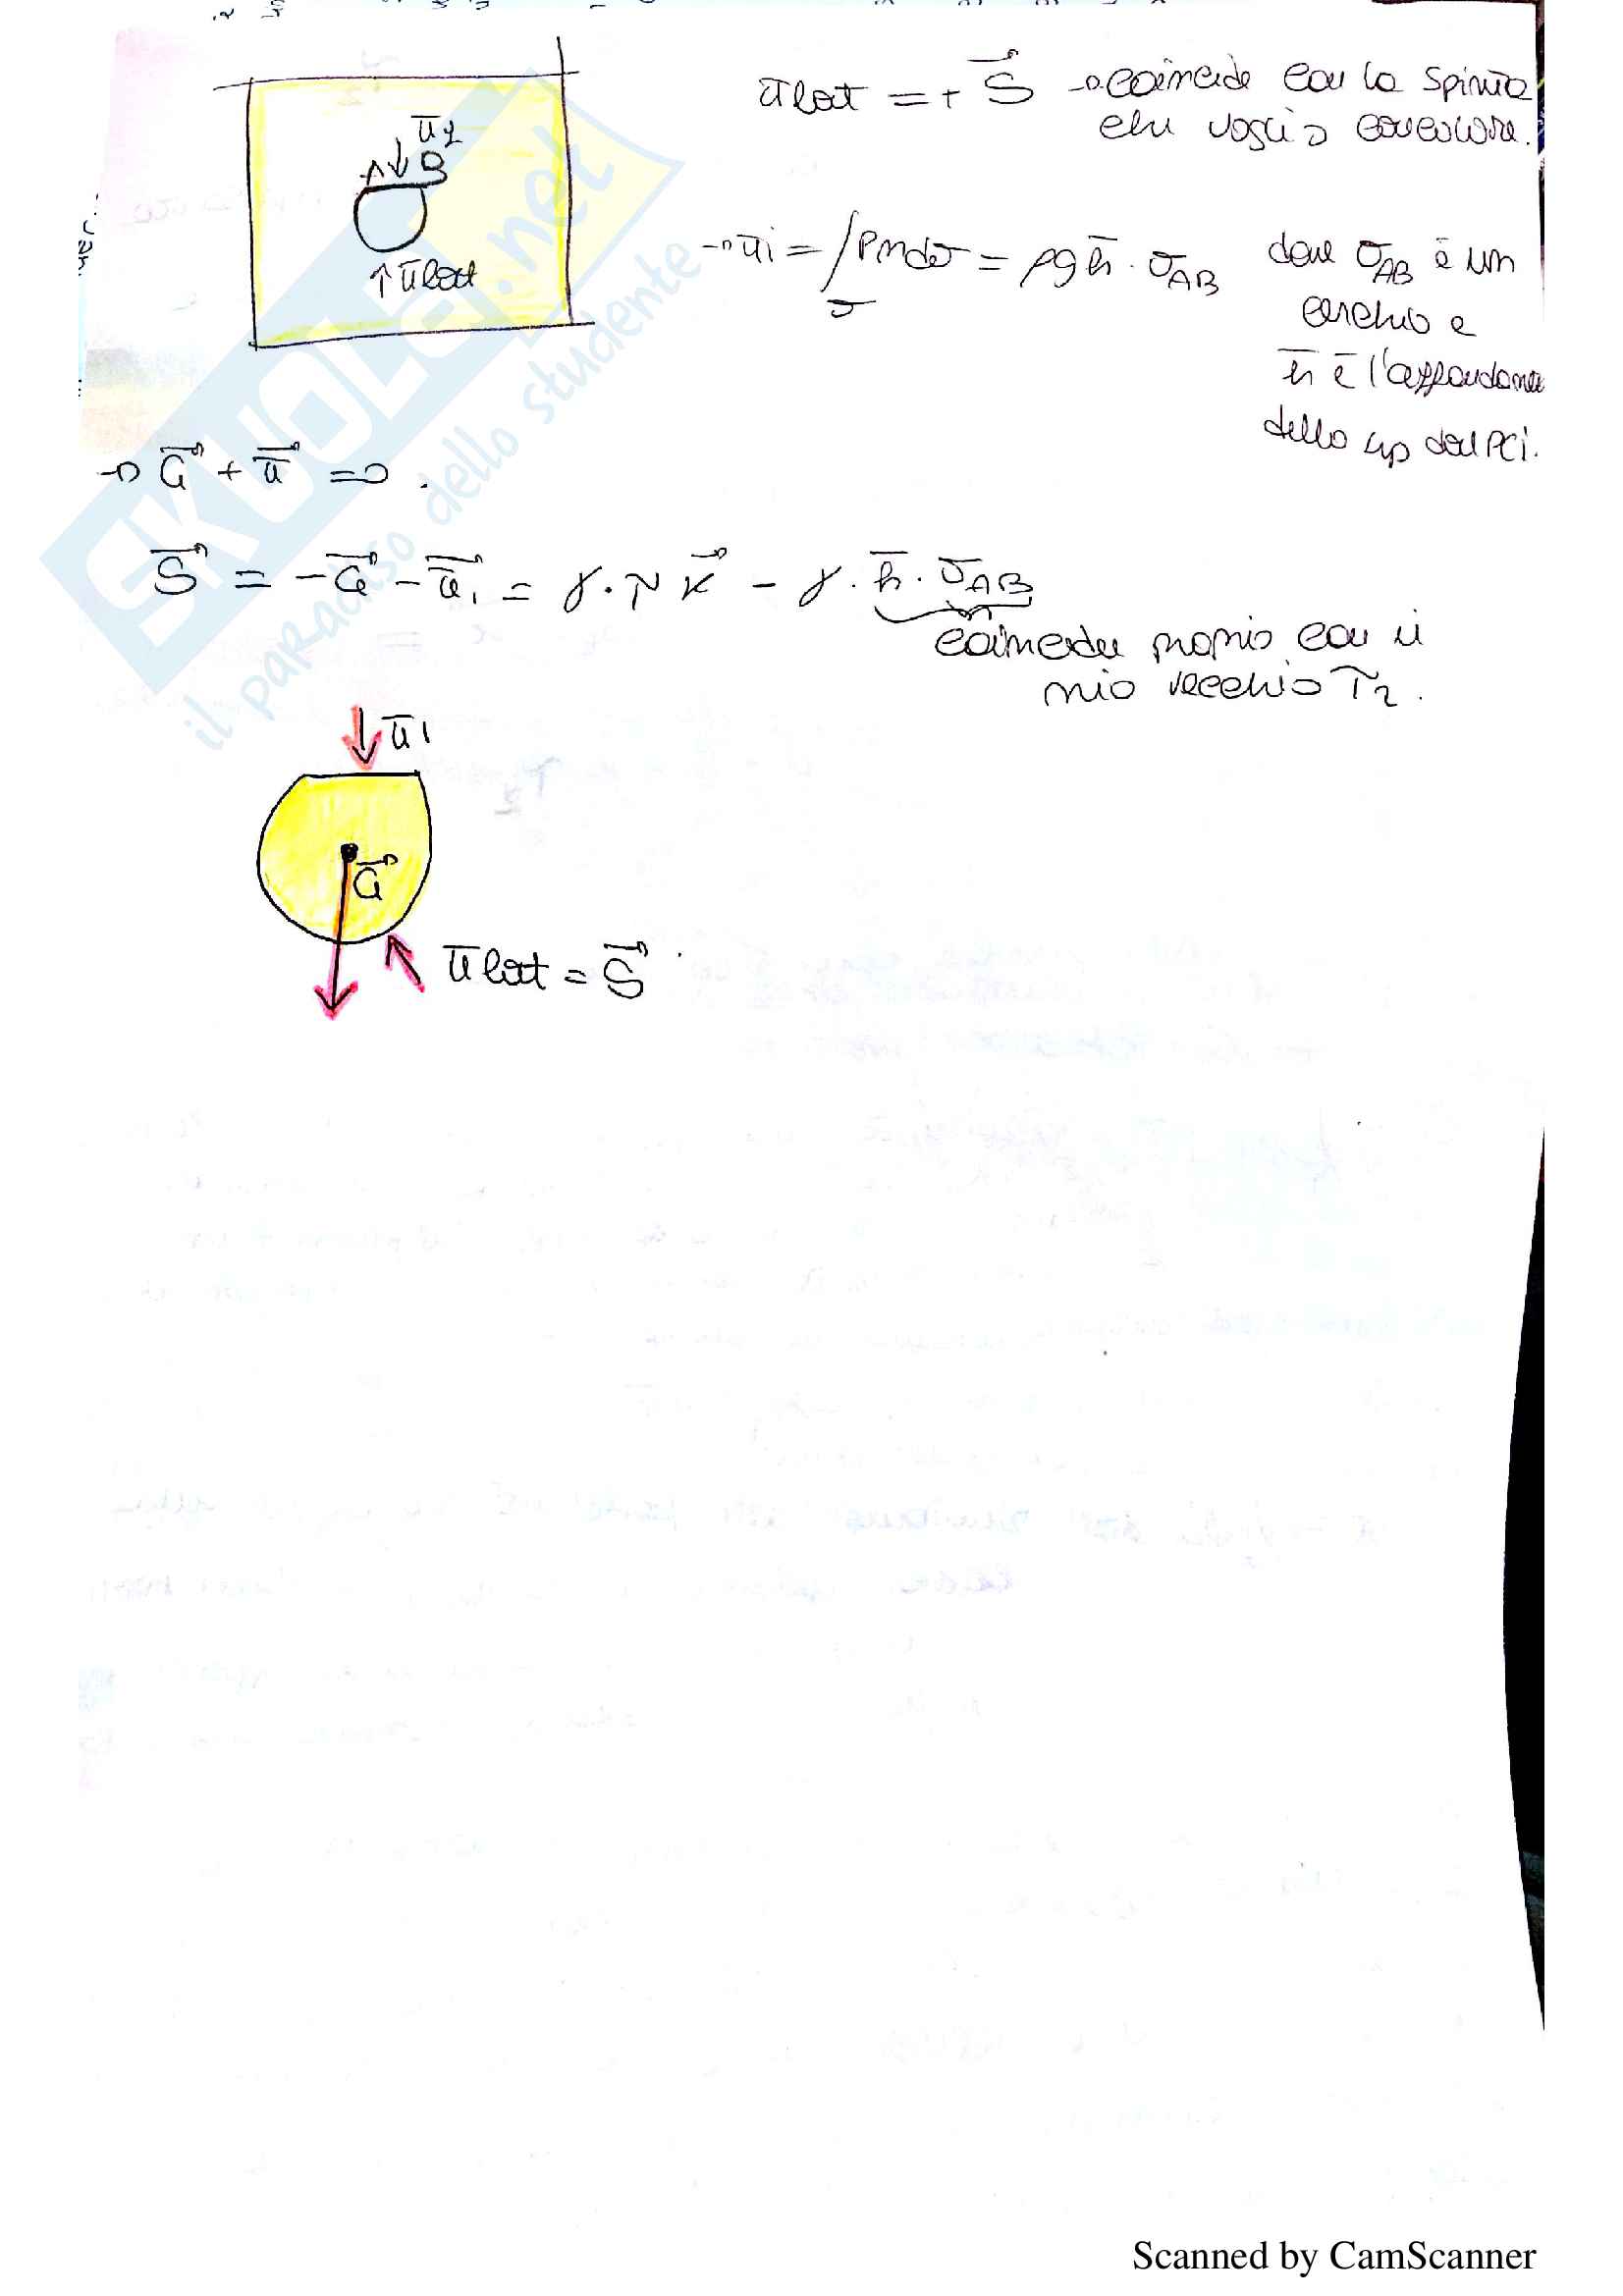 π̄lat = + S → coincide con la spinta
che voglio conoscere.
π̄2
A B
↑ π̄lat
→ π̄1 = ∫σ p n dσ = ρ g h̄ · σAB dove σAB è un
cerchio e
h̄ è l'affondamento
dello sp dal PCI.
→ G + π̄ = 0.
S = - G - π̄1 = γ · W k - γ · h̄ · σAB
coincide proprio con il
mio vecchio π2.
π̄1
G
π̄lat = S
SKUOLA.net
il paradiso dello studente
Scanned by CamScanner